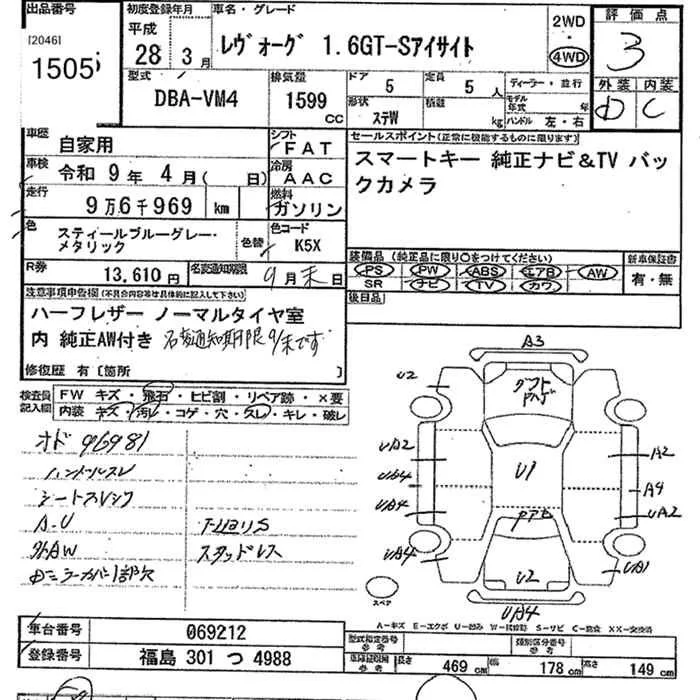 出品番号
[2046]
1505
初度登録年月
平成
28 3月
車名・グレード
レヴォーグ 1.6GT-Sアイサイト
2WD
・
4WD
評価点
3
外装 内装
D C
型式
DBA-VM4
排気量
1599 CC
ドア 5
形状 ステW
定員 5人
積載 kg
ディーラー・並行
モデル年式 年
ハンドル 左・右
車歴
自家用
シフト
FAT
車検
令和 9年 4月( 日)
冷房
AAC
走行
9万6千969 km
燃料
ガソリン
色
スティールブルーグレー・
メタリック
色替
色コード
K5X
R券
13,610円
名変通知期限
9月末日
セールスポイント(正常に機能するものに限ります)
スマートキー 純正ナビ&TV バッ
クカメラ
装備品 (純正品に限り○をつけてください)
PS PW ABS エアB AW
SR ナビ TV カワ
新車保証書
有・無
後日品
注意事項申告欄(不具合内容等は具体的に記入して下さい)
ハーフレザー ノーマルタイヤ室
内 純正AW付き 名変通知期限9/末です
修復歴 有〔箇所 〕
検査員
記入欄
FW キズ・飛石・ヒビ割・リペア跡・×要
内装 キズ・汚レ・コゲ・穴・スレ・キレ・破レ
オド 96981
ハンドルスレ
シートスレシワ
A.U
外AW
スタッドレス
A3
U2
U1
UA2
A2
UA4
A4
UA4
UA2
UA4
UA1
U2
UA4
スペア
A-キズ E-エクボ U-凹み W-補修跡 S-サビ C-腐食 XX-交換済
車台番号
069212
登録番号
福島 301 つ 4988
型式指定番号
参考
類別区分番号
参考
車検証記載
参考
長さ 469cm
幅 178cm
高さ 149cm